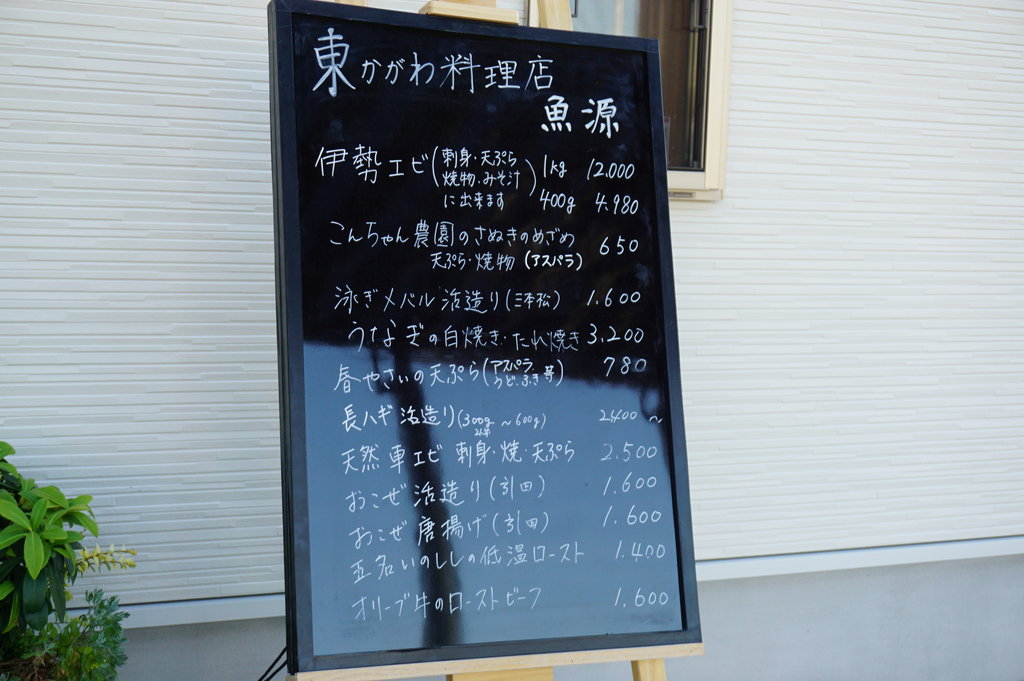 東かがわ料理店
魚源
伊勢エビ(刺身・天ぷら 焼物、みそ汁 に出来ます) 1kg 12.000
400g 4.980
こんちゃん農園のさぬきのめざめ 650
天ぷら・焼物(アスパラ)
泳ぎメバル活造り(三本松) 1.600
うなぎの白焼き・たれ焼き 3.200
春やさいの天ぷら(アスパラ、うど、ふき等) 780
長ハギ活造り(300g～600g) 2400～
天然車エビ 刺身・焼・天ぷら 2.500
おこぜ活造り(引田) 1.600
おこぜ唐揚げ(引田) 1.600
五名いのししの低温ロースト 1.400
オリーブ牛のローストビーフ 1.600